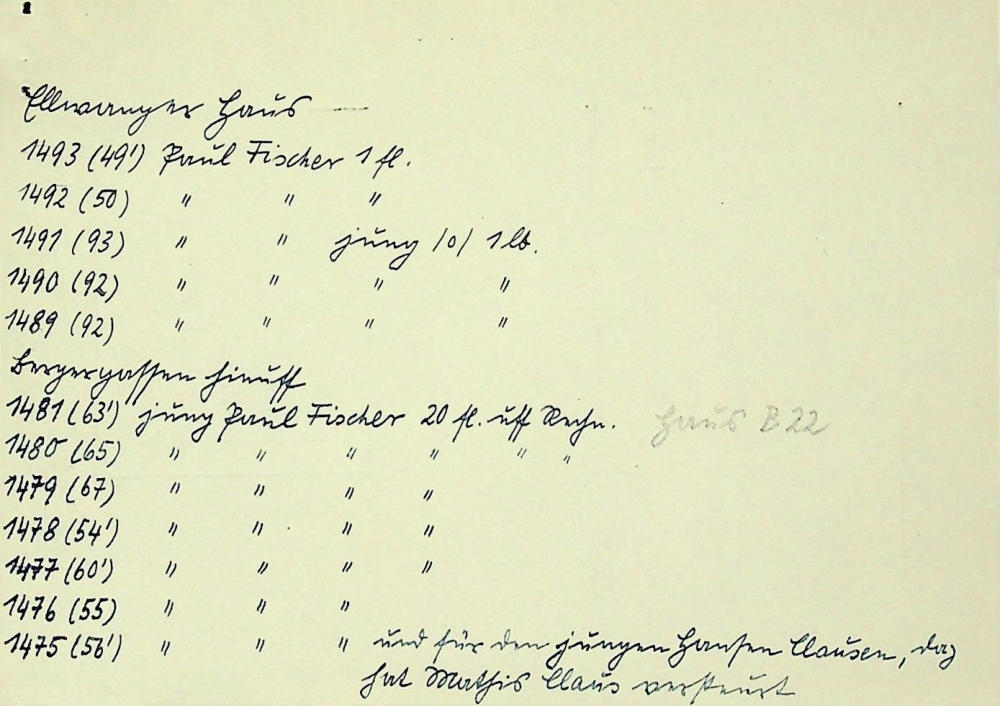 Ellwanger Haus
1493 (49') Paul Fischer 1 fl.
1492 (50) " " "
1491 (93) " " jung /o/ 1 lb.
1490 (92) " " " "
1489 (92) " " " "
Bergergassen hinuff
1481 (63') jung Paul Fischer 20 fl. uff Rechn. Haus B 22
1480 (65) " " " " " "
1479 (67) " " " "
1478 (54') " " " "
1477 (60') " " " "
1476 (55) " " "
1475 (56') " " " und für den jungen Hansen Clausen, daz
hat Mathis Claus versteurt